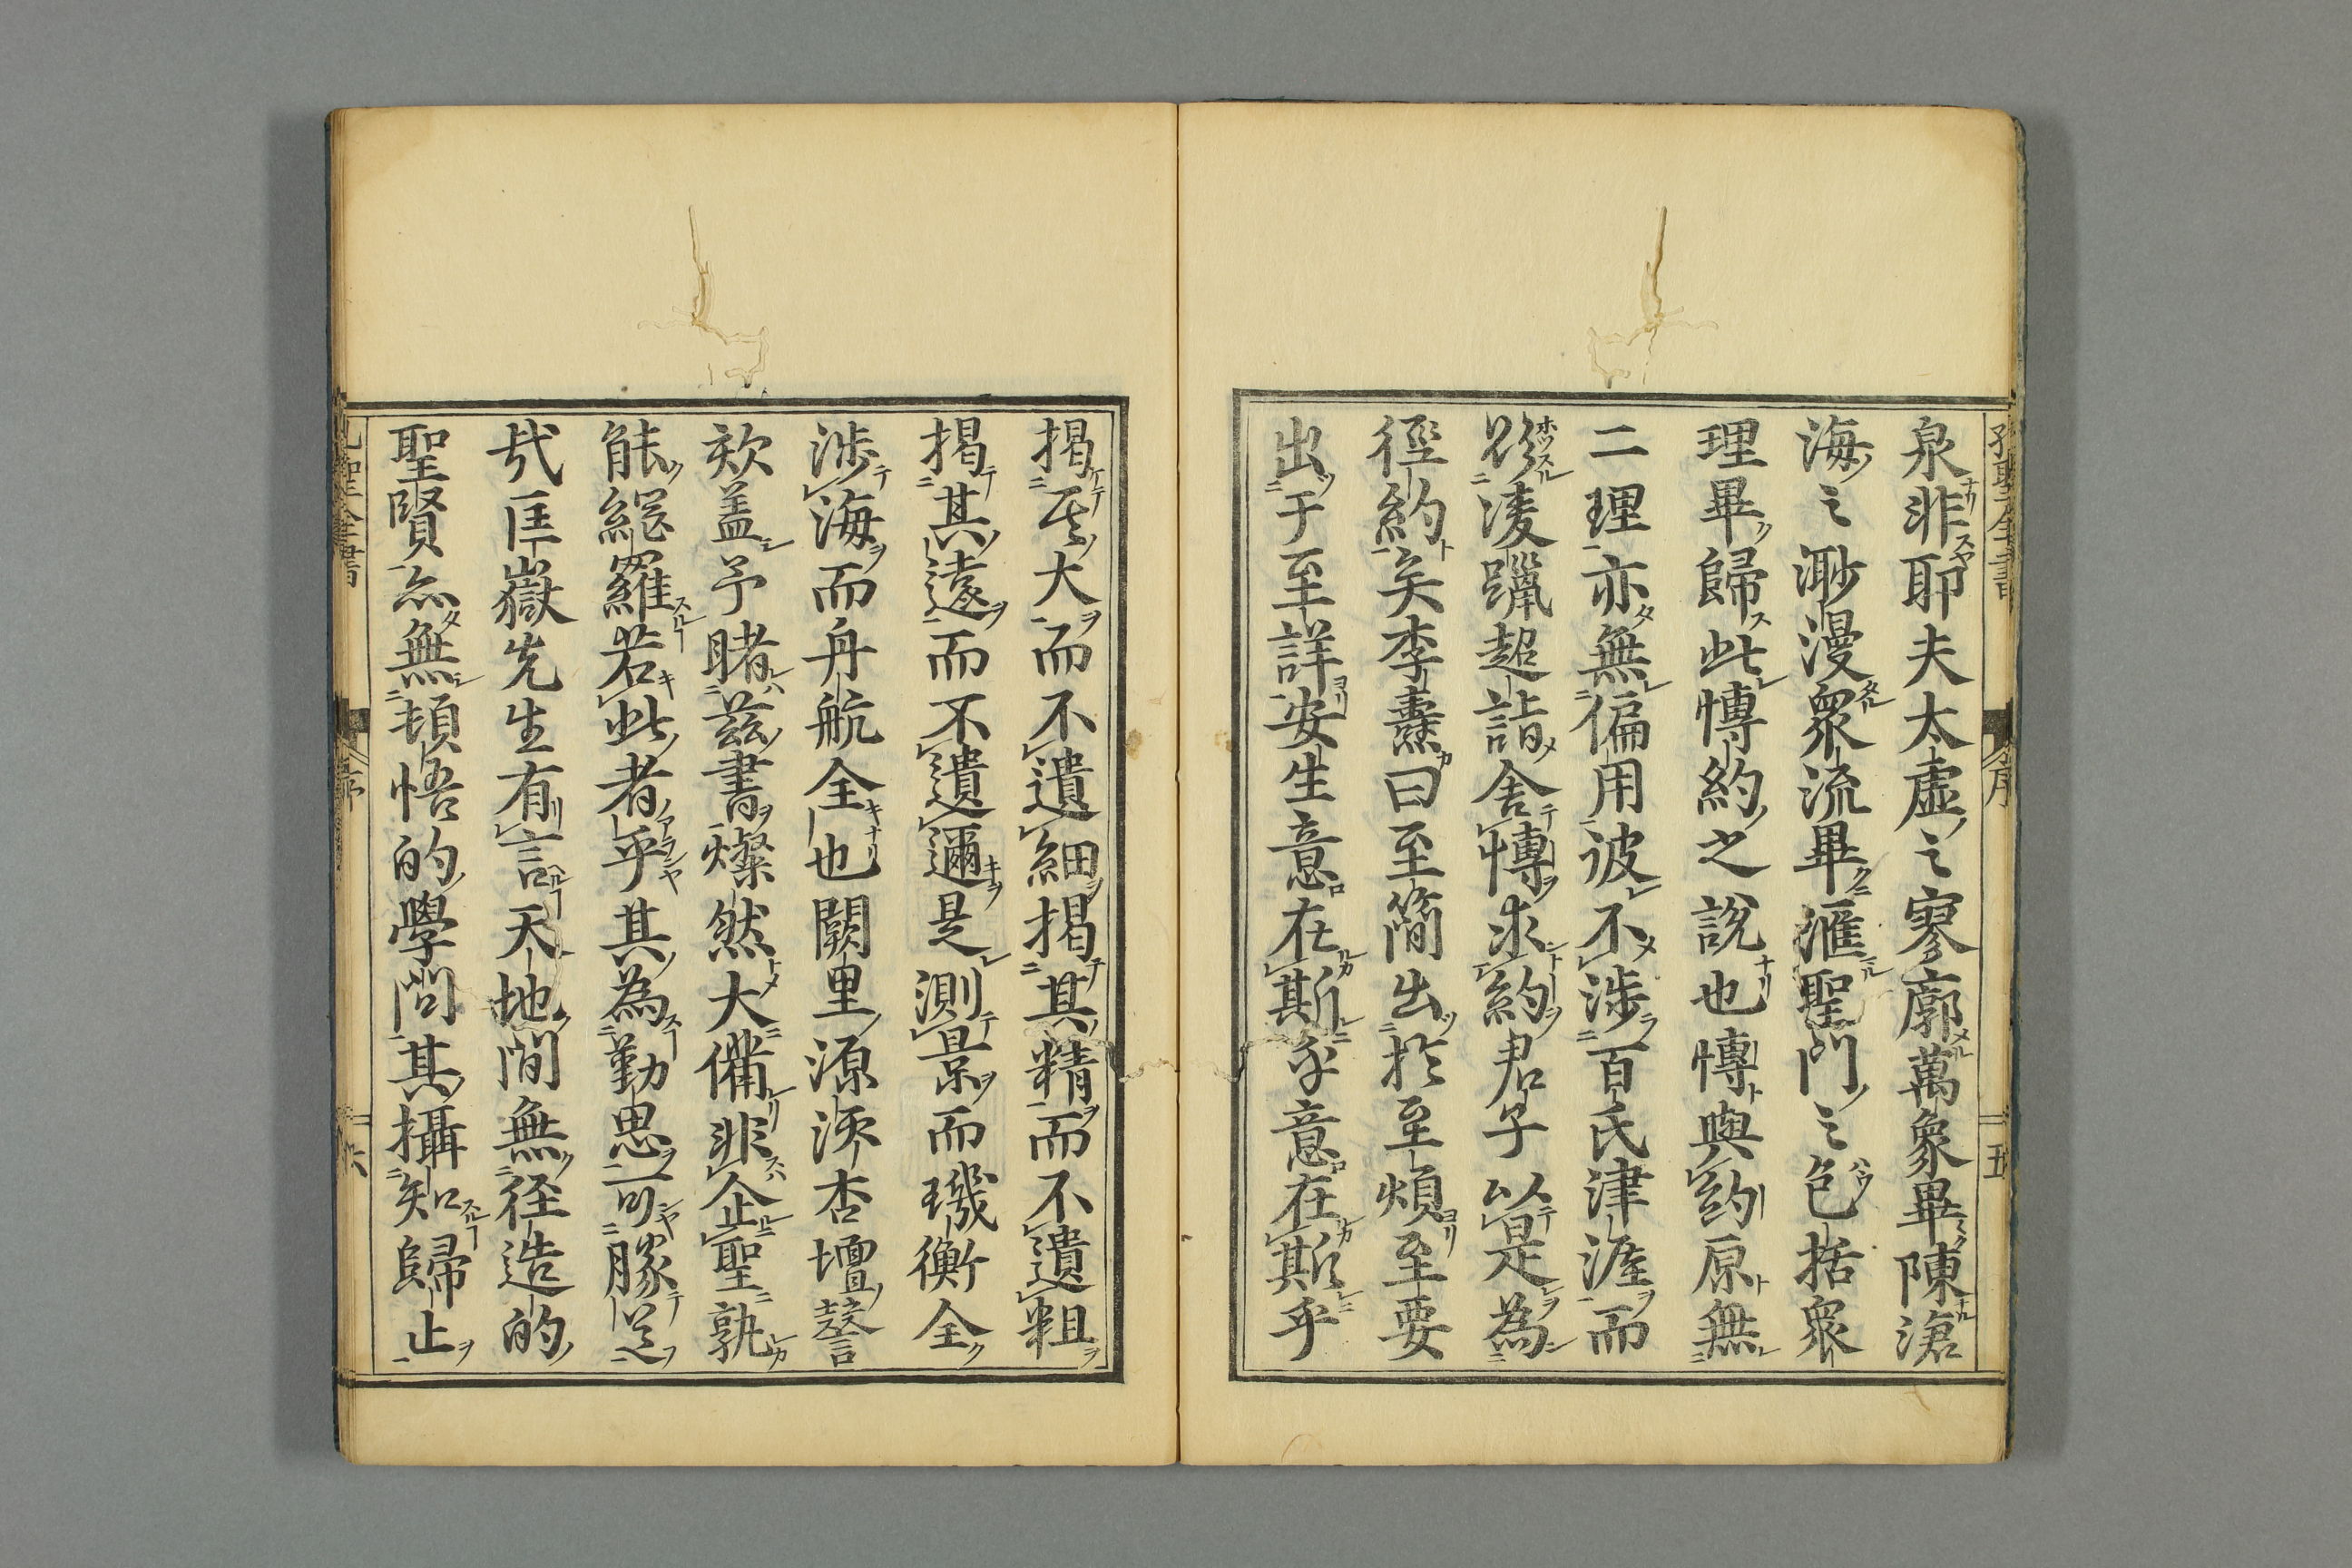 泉非耶夫太虛之寥廓萬象畢陳滄
海之渺漫衆流畢滙聖門之包括衆
理畢歸此博約之說也博與約原無
二理亦無偏用彼不涉百氏津涯而
欲凌躐超詣舍博求約君子以是為
徑約矣李燾曰至簡出於至煩至要
出于至詳安生意在斯乎意在斯乎
揭其大而不遺細揭其精而不遺粗
揭其遠而不遺邇是測景而璣衡全
涉海而舟航全也闕里源派杏壇謦
欬盖予睹茲書燦然大備非企聖孰
能網羅若此者乎其為勤思可勝道
哉匡嶽先生有言天地間無徑造的
聖賢亦無頓悟的學問其攝知歸止
孔聖全書
序
五
孔聖全書
序
六